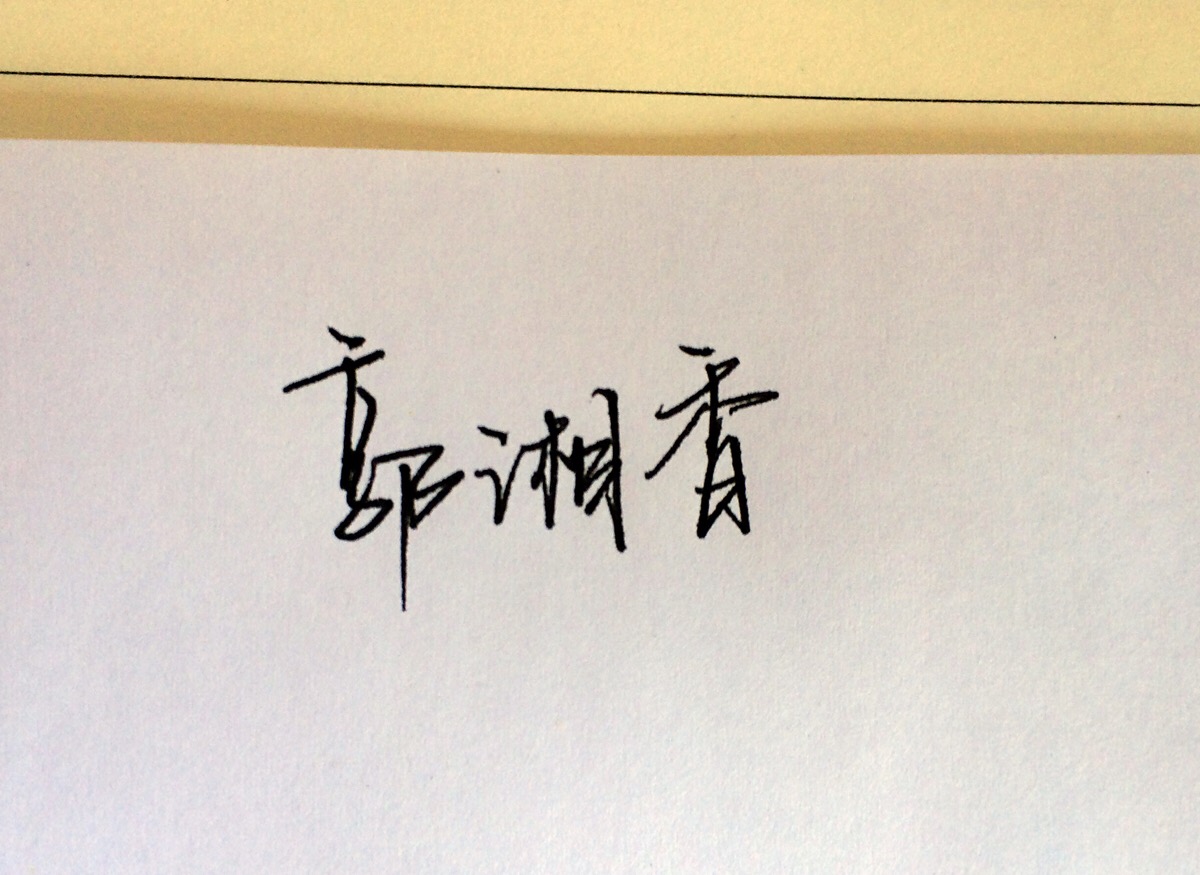 郭湘香